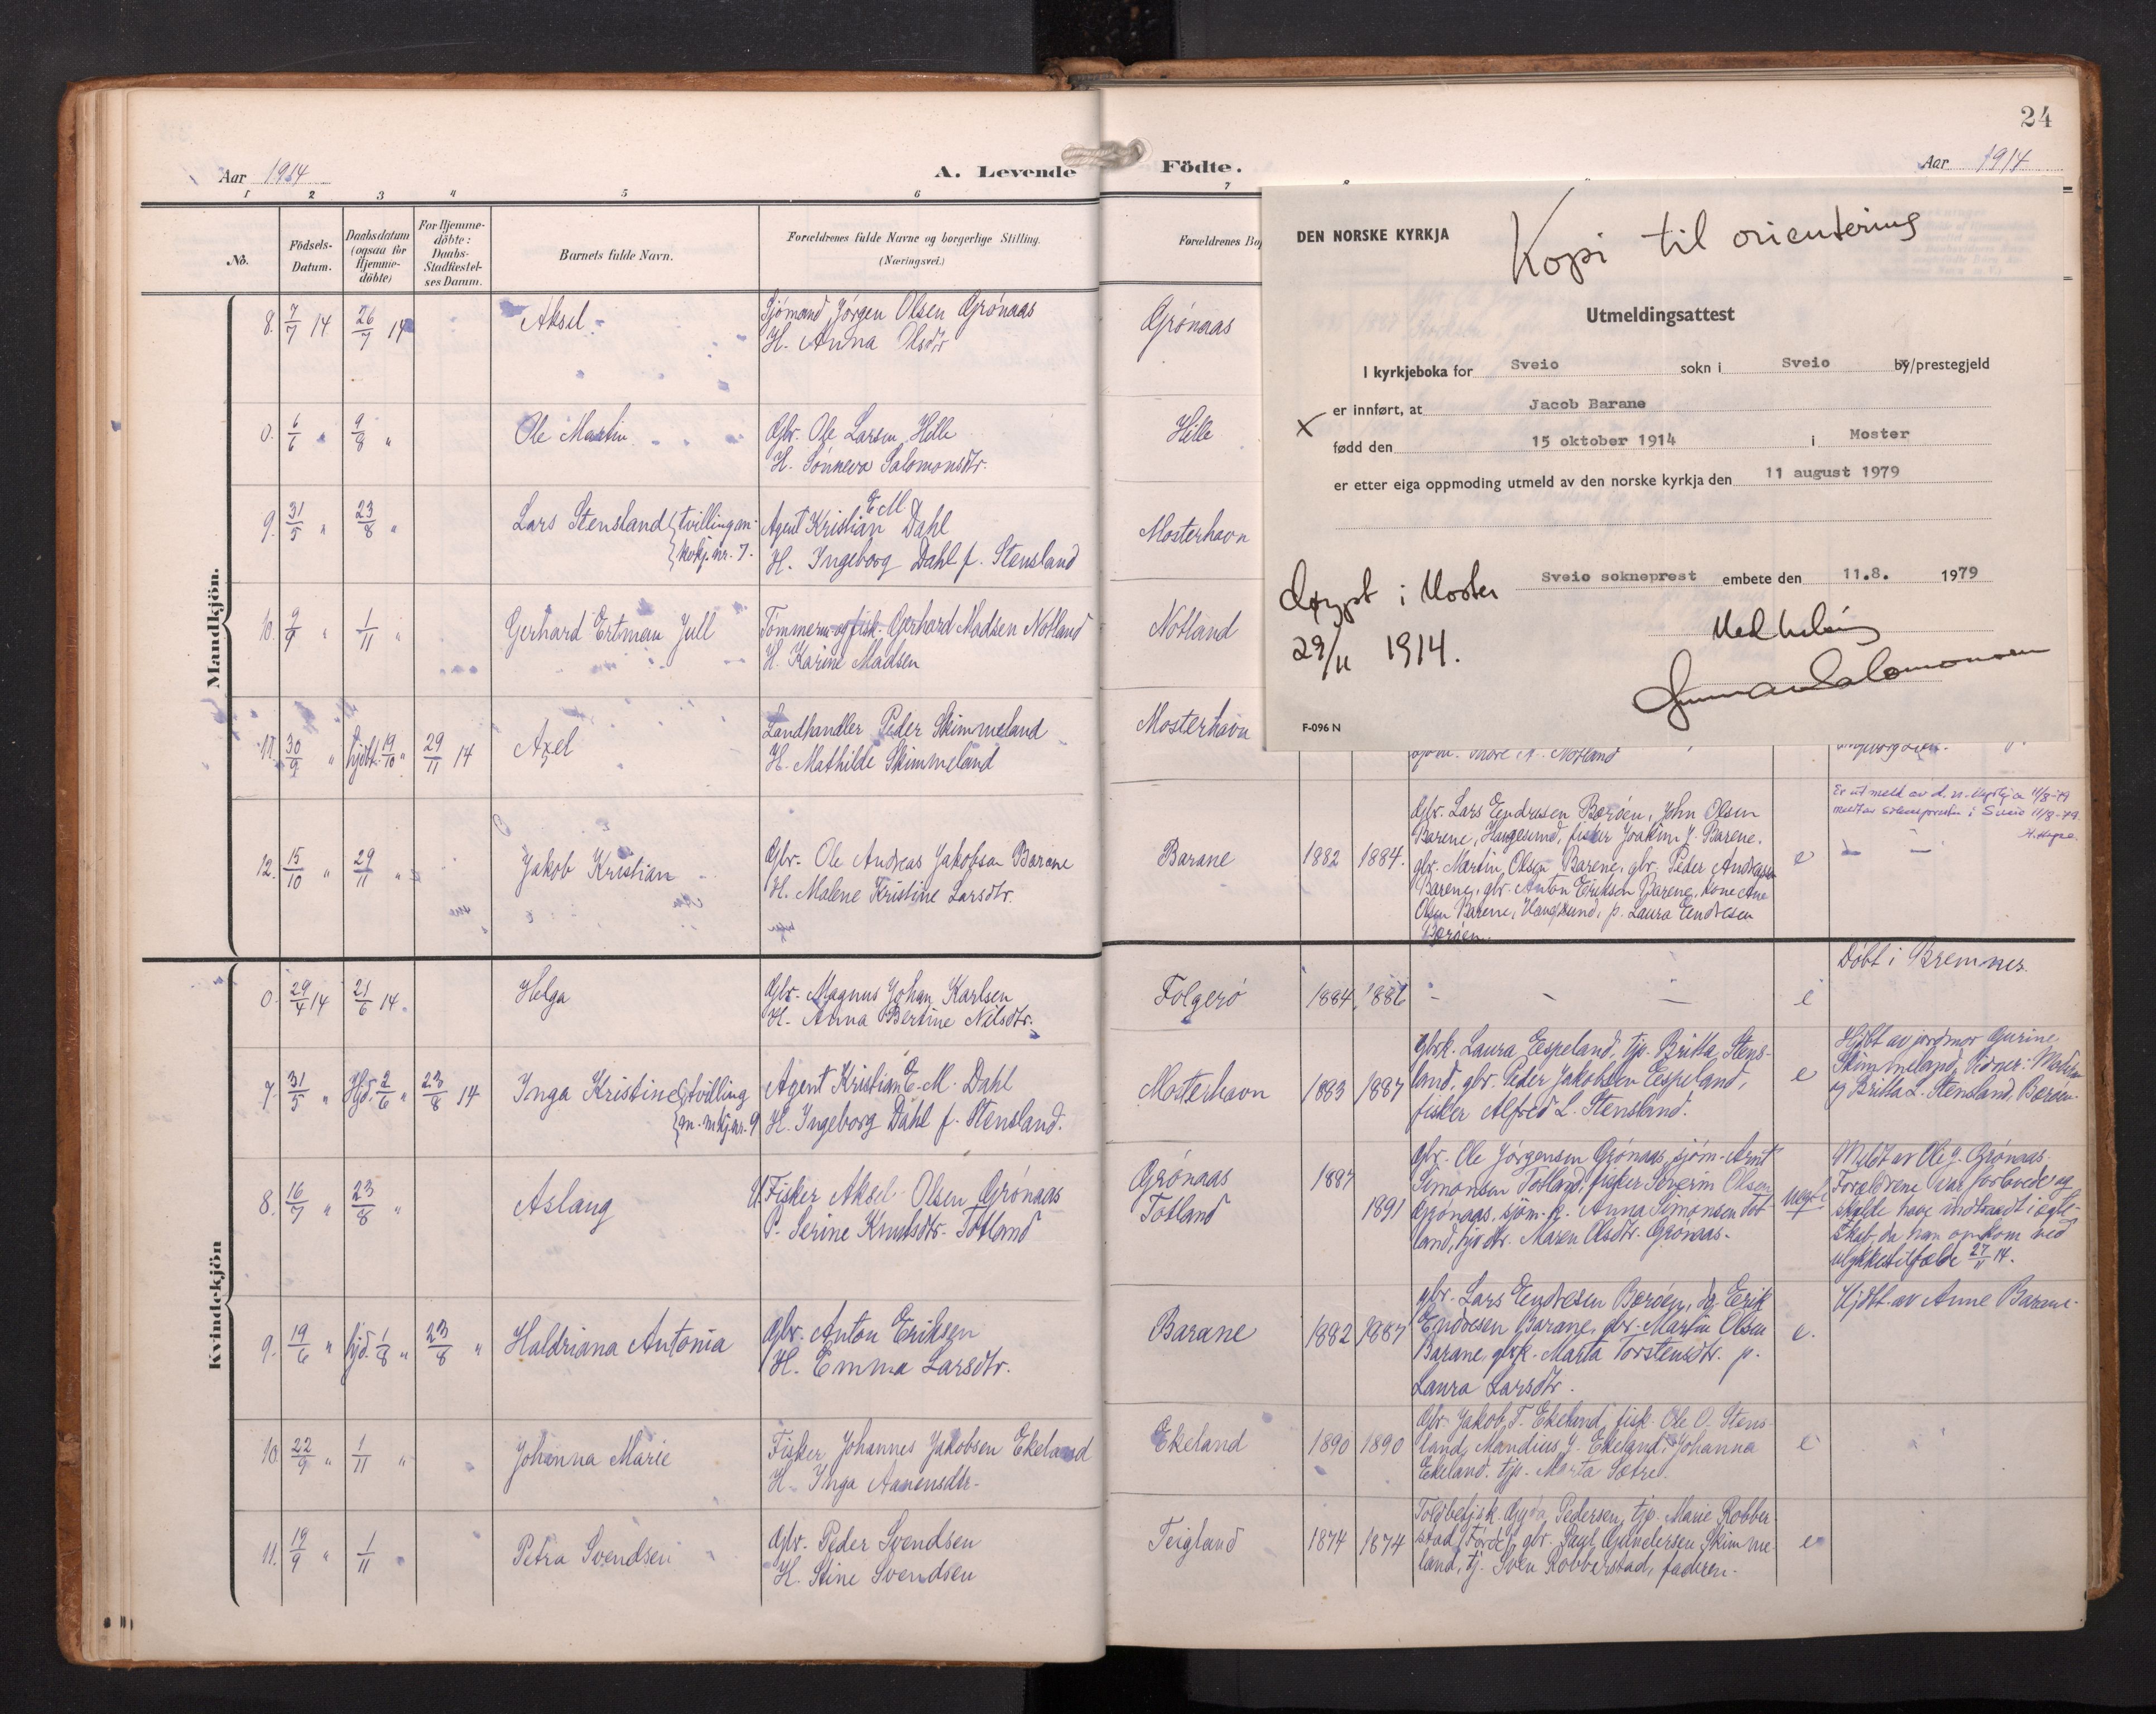 24
Aar 1914
A. Levende
Födte.
Aar 1914
1 2 3 4 5 6 7
No.
Födsels-Datum.
Daabsdatum (ogsaa for Hjemme-döbte)
For Hjemme-döbte: Daabs-Stadfæstel-ses Datum.
Barnets fulde Navn.
Forældrenes fulde Navne og borgerlige Stilling. (Næringsvei.)
Forældrenes Bo
Mandkjön.
8. 7/7 14 26/7 14 Aksel Sjömand Jörgen Olsen Grönaas Grönaas
H. Anna Olsdtr
0. 6/6 " 9/8 " Ole Martin Gbr. Ole Larsen Hille Hille
H. Sönneva Salomonsdtr.
9. 31/5 " 23/8 " Lars Stensland tvilling m. Agent Kristian E. M. Dahl Mosterhavn
kvkj. nr. 7. H. Ingeborg Dahl f. Stensland
10. 9/9 " 1/11 " Gerhard Ertman Jull Tömmerm. og fisk. Gerhard Madsen Notland Notland
H. Karine Madsen
11. 30/9 " hjdbt. 19/10 " 29/11 14 Axel Landhandler Peder Skimmeland Mosterhavn
H. Mathilde Skimmeland
12. 15/10 " 29/11 " Jakob Kristian Gbr. Ole Andreas Jakobsen Barane Barane 1882 1884.
H. Malene Kristine Larsdtr.
Gbr. Lars Eendresen Boröen, John Olsen
Barene, Haugesund, fisker Joakim J. Barene,
gbr. Martin Olsen Barene, gbr. Peder Andreasen
Barene, gbr. Anton Eriksen Barene, kone Ane
Olsen Barene, Haugesund, p. Laura Eendresen
Boröen.
e
Er utmeld av d. n. kyrkja 11/8-79
meldt av soknepresten i Sveio 11/8-79.
DEN NORSKE KYRKJA
Kopi til orientering
Utmeldingsattest
I kyrkjeboka for Sveio sokn i Sveio by/prestegjeld
x er innført, at Jacob Barane
fødd den 15 oktober 1914 i Moster
er etter eiga oppmoding utmeld av den norske kyrkja den 11 august 1979
Sveio sokneprest embete den 11.8. 1979
Døypt i Moster
29/11 1914.
Med helsing
Gunnar Salomonsen
F-096 N
Kvindekjön
0. 29/4 14 21/6 14. Helga Gbr. Magnus Johan Karlsen Folgerö 1884 1886 e Döbt i Bremnes.
H. Anna Bertine Nilsdtr.
7. 31/5 " Hjd. 2/6 " 23/8 14 Inga Kristine tvilling Agent Kristian E. M. Dahl Mosterhavn 1893 1887
m. mkj. nr. 9 H. Ingeborg Dahl f. Stensland.
Gbrk. Laura Eespeland, tjp. Britta Stens-
land, gbr. Peder Jakobsen Eespeland,
fisker Alfred L. Stensland.
e
Hjdbt av jordmor Gurine
Skimmeland, Vidner:
og Britta L. Stensland, Boröen.
8. 16/7 " 23/8 " Aslaug U. Fisker Aksel Olsen Grönaas Grönaas 1887
P. Serine Knutsdtr. Totland Totland 1891
Gbr. Ole Jörgensen Grönaas, sjöm. Arnt
Simonsen Totland, fisker Severin Olsen
Grönaas, sjöm. k. Anna Simonsen Tot-
land, tjp. Maren Olsdtr. Grönaas.
uegte
Meldt av Ole J. Grönaas.
Forældrene var forlovede og
skulde have indtraadt i ægte-
skab, da han omkom ved
ulykkestilfælde 27/11 14.
9. 19/6 " hjd. 1/8 " 23/8 " Haldriana Antonia Gbr. Anton Eriksen Barane 1882 1887
H. Emma Larsdtr.
gbr. Lars Eendresen Boröen, do Eerik
Endresen Barane, gbr. Martin Olsen
Barane, gbrk. Marta Torstensdtr. p.
Laura Larsdtr.
e.
Hjdbt av Anne Barane.
10. 22/9 " 1/11 " Johanna Marie Fisker Johannes Jakobsen Ekeland Ekeland 1890 1890
H. Inga Aanensdtr.
Gbr. Jakob T. Ekeland, fisk. Ole O. Stens-
land, Mandius J. Ekeland, Johanna
Ekeland. tjp. Marta Sætre.
e
11. 19/9 " 1/11 Petra Svendsen Gbr. Peder Svendsen Teigland 1874 1874
H. Stine Svendsen
Toldbetjsk. Gyda Pedersen, tjp. Marie Robber-
stad, Förde, gbr. Paul Gundersen Skimme-
land, tj. Sven Robberstad, faderen.
e